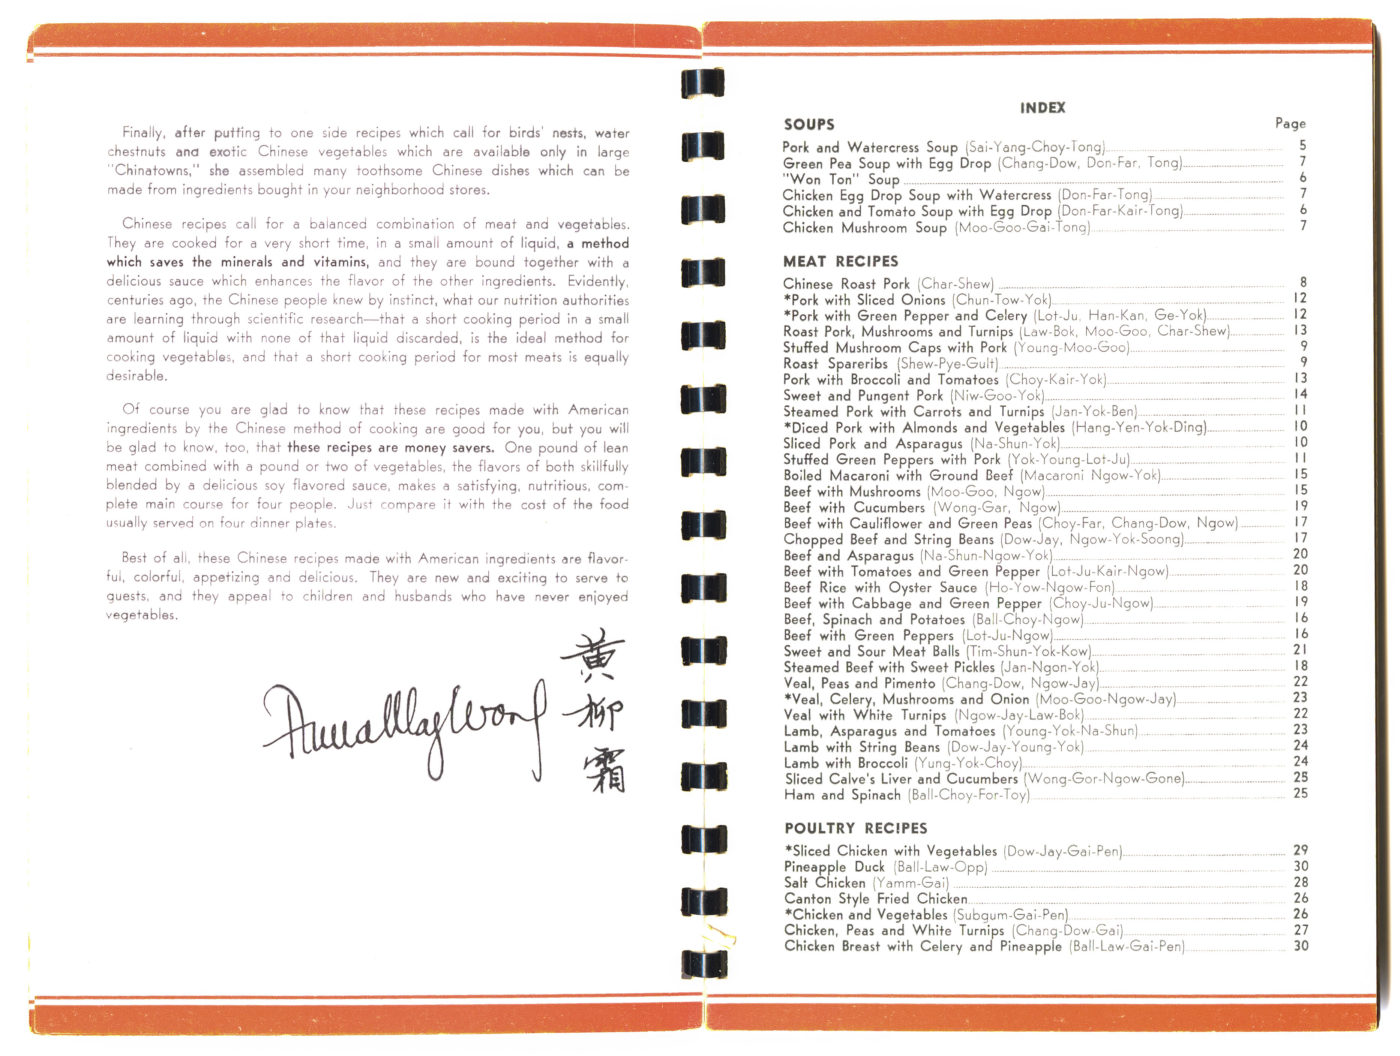 Finally, after putting to one side recipes which call for birds' nests, water
chestnuts and exotic Chinese vegetables which are available only in large
"Chinatowns," she assembled many toothsome Chinese dishes which can be
made from ingredients bought in your neighborhood stores.
Chinese recipes call for a balanced combination of meat and vegetables.
They are cooked for a very short time, in a small amount of liquid, a method
which saves the minerals and vitamins, and they are bound together with a
delicious sauce which enhances the flavor of the other ingredients. Evidently,
centuries ago, the Chinese people knew by instinct, what our nutrition authorities
are learning through scientific research—that a short cooking period in a small
amount of liquid with none of that liquid discarded, is the ideal method for
cooking vegetables, and that a short cooking period for most meats is equally
desirable.
Of course you are glad to know that these recipes made with American
ingredients by the Chinese method of cooking are good for you, but you will
be glad to know, too, that these recipes are money savers. One pound of lean
meat combined with a pound or two of vegetables, the flavors of both skillfully
blended by a delicious soy flavored sauce, makes a satisfying, nutritious, com-
plete main course for four people. Just compare it with the cost of the food
usually served on four dinner plates.
Best of all, these Chinese recipes made with American ingredients are flavor-
ful, colorful, appetizing and delicious. They are new and exciting to serve to
guests, and they appeal to children and husbands who have never enjoyed
vegetables.
Anna May Wong
黃柳霜
INDEX
SOUPS Page
Pork and Watercress Soup (Sai-Yang-Choy-Tong) 5
Green Pea Soup with Egg Drop (Chang-Dow, Don-Far, Tong) 7
"Won Ton" Soup 6
Chicken Egg Drop Soup with Watercress (Don-Far-Tong) 7
Chicken and Tomato Soup with Egg Drop (Don-Far-Kair-Tong) 6
Chicken Mushroom Soup (Moo-Goo-Gai-Tong) 7
MEAT RECIPES
Chinese Roast Pork (Char-Shew) 8
*Pork with Sliced Onions (Chun-Tow-Yok) 12
*Pork with Green Pepper and Celery (Lot-Ju, Han-Kan, Ge-Yok) 12
Roast Pork, Mushrooms and Turnips (Law-Bok, Moo-Goo, Char-Shew) 13
Stuffed Mushroom Caps with Pork (Young-Moo-Goo) 9
Roast Spareribs (Shew-Pye-Gult) 9
Pork with Broccoli and Tomatoes (Choy-Kair-Yok) 13
Sweet and Pungent Pork (Niw-Goo-Yok) 14
Steamed Pork with Carrots and Turnips (Jan-Yok-Ben) 11
*Diced Pork with Almonds and Vegetables (Hang-Yen-Yok-Ding) 10
Sliced Pork and Asparagus (Na-Shun-Yok) 10
Stuffed Green Peppers with Pork (Yok-Young-Lot-Ju) 11
Boiled Macaroni with Ground Beef (Macaroni Ngow-Yok) 15
Beef with Mushrooms (Moo-Goo, Ngow) 15
Beef with Cucumbers (Wong-Gar, Ngow) 19
Beef with Cauliflower and Green Peas (Choy-Far, Chang-Dow, Ngow) 17
Chopped Beef and String Beans (Dow-Jay, Ngow-Yok-Soong) 17
Beef and Asparagus (Na-Shun-Ngow-Yok) 20
Beef with Tomatoes and Green Pepper (Lot-Ju-Kair-Ngow) 20
Beef Rice with Oyster Sauce (Ho-Yow-Ngow-Fon) 18
Beef with Cabbage and Green Pepper (Choy-Ju-Ngow) 19
Beef, Spinach and Potatoes (Ball-Choy-Ngow) 16
Beef with Green Peppers (Lot-Ju-Ngow) 16
Sweet and Sour Meat Balls (Tim-Shun-Yok-Kow) 21
Steamed Beef with Sweet Pickles (Jan-Ngon-Yok) 18
Veal, Peas and Pimento (Chang-Dow, Ngow-Jay) 22
*Veal, Celery, Mushrooms and Onion (Moo-Goo-Ngow-Jay) 23
Veal with White Turnips (Ngow-Jay-Law-Bok) 22
Lamb, Asparagus and Tomatoes (Young-Yok-Na-Shun) 23
Lamb with String Beans (Dow-Jay-Young-Yok) 24
Lamb with Broccoli (Yung-Yok-Choy) 24
Sliced Calve's Liver and Cucumbers (Wong-Gor-Ngow-Gone) 25
Ham and Spinach (Ball-Choy-For-Toy) 25
POULTRY RECIPES
*Sliced Chicken with Vegetables (Dow-Jay-Gai-Pen) 29
Pineapple Duck (Ball-Law-Opp) 30
Salt Chicken (Yamm-Gai) 28
Canton Style Fried Chicken 26
*Chicken and Vegetables (Subgum-Gai-Pen) 26
Chicken, Peas and White Turnips (Chang-Dow-Gai) 27
Chicken Breast with Celery and Pineapple (Ball-Law-Gai-Pen) 30